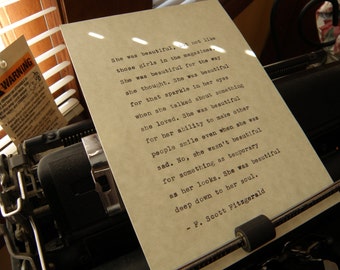 She was beautiful, but not like
those girls in the magazines.
She was beautiful for the way
she thought. She was beautiful
for that sparkle in her eyes
when she talked about something
she loved. She was beautiful
for her ability to make other
people smile even when she was
sad. No, she wasn't beautiful
for something as temporary
as her looks. She was beautiful
deep down to her soul.
~ F. Scott Fitzgerald
WARNING